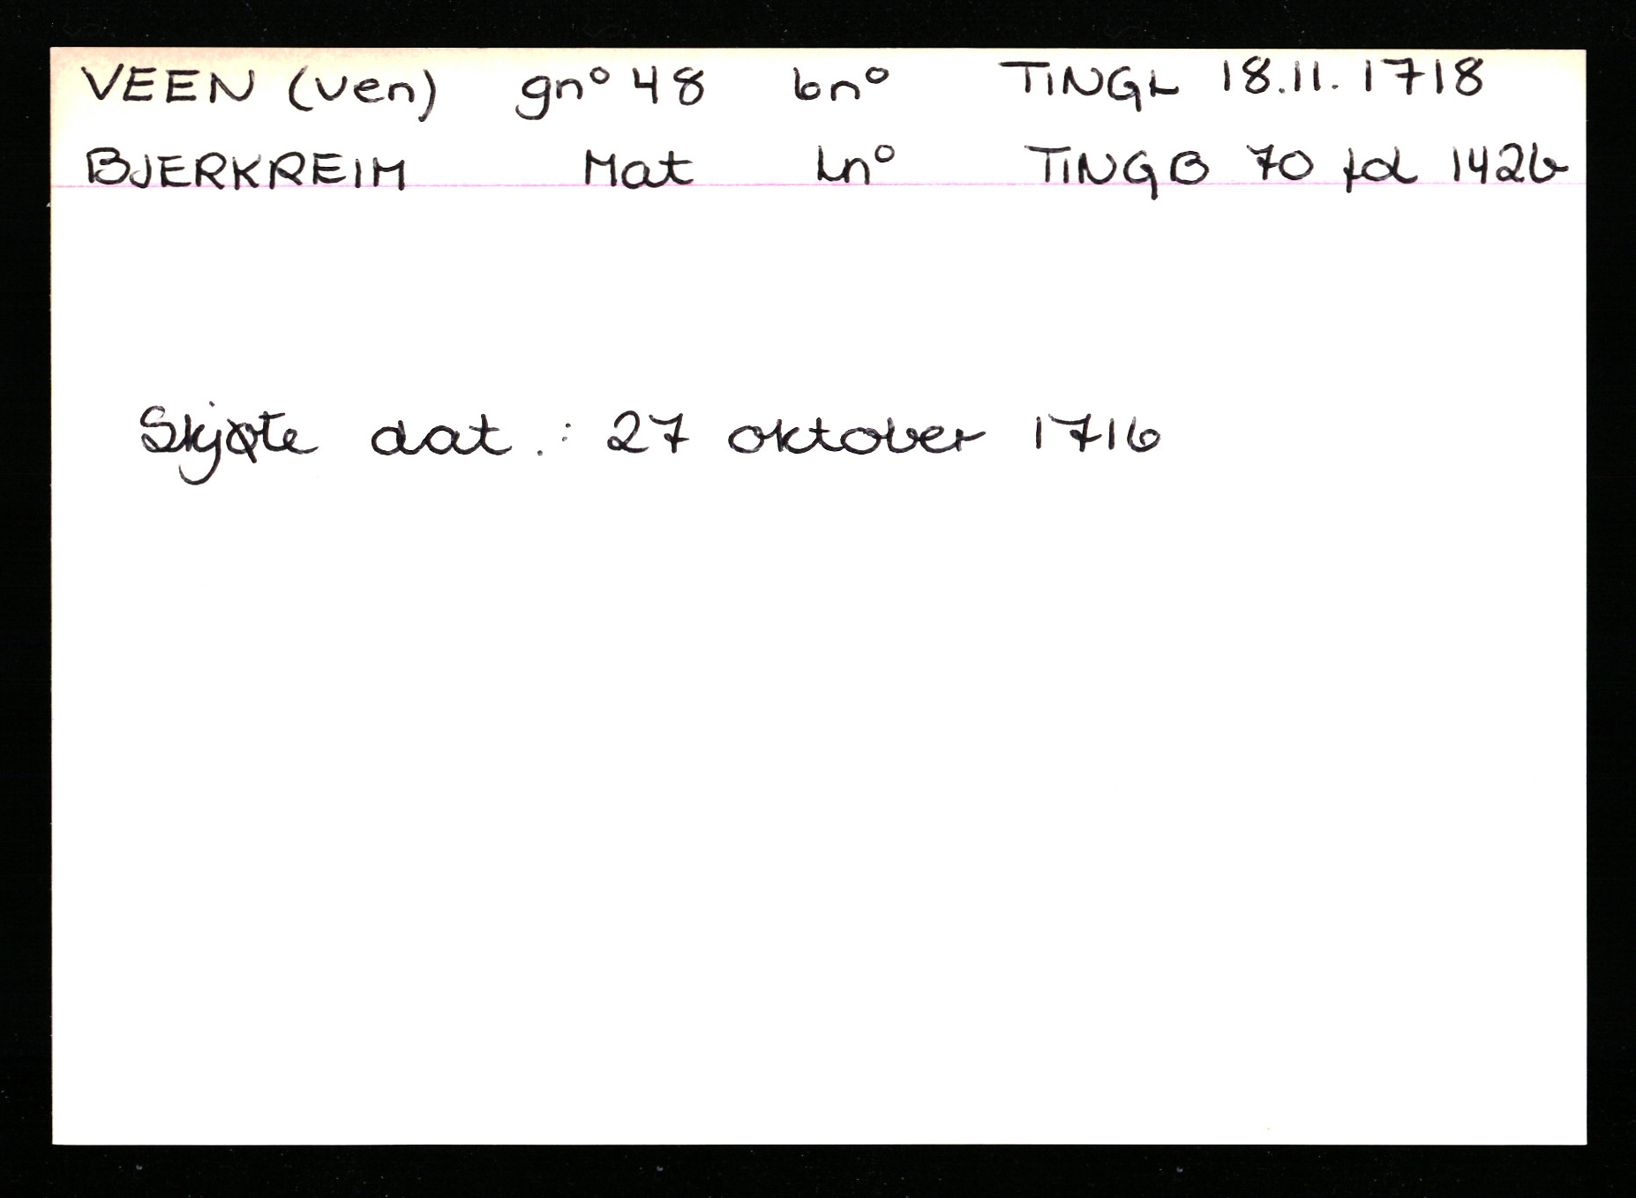 VEEN (ven) gnº 48 bnº TINGL 18.11.1718
BJERKREIM Mat Lnº TINGB 70 fol 142b
Skjøte dat.: 27 oktober 1716